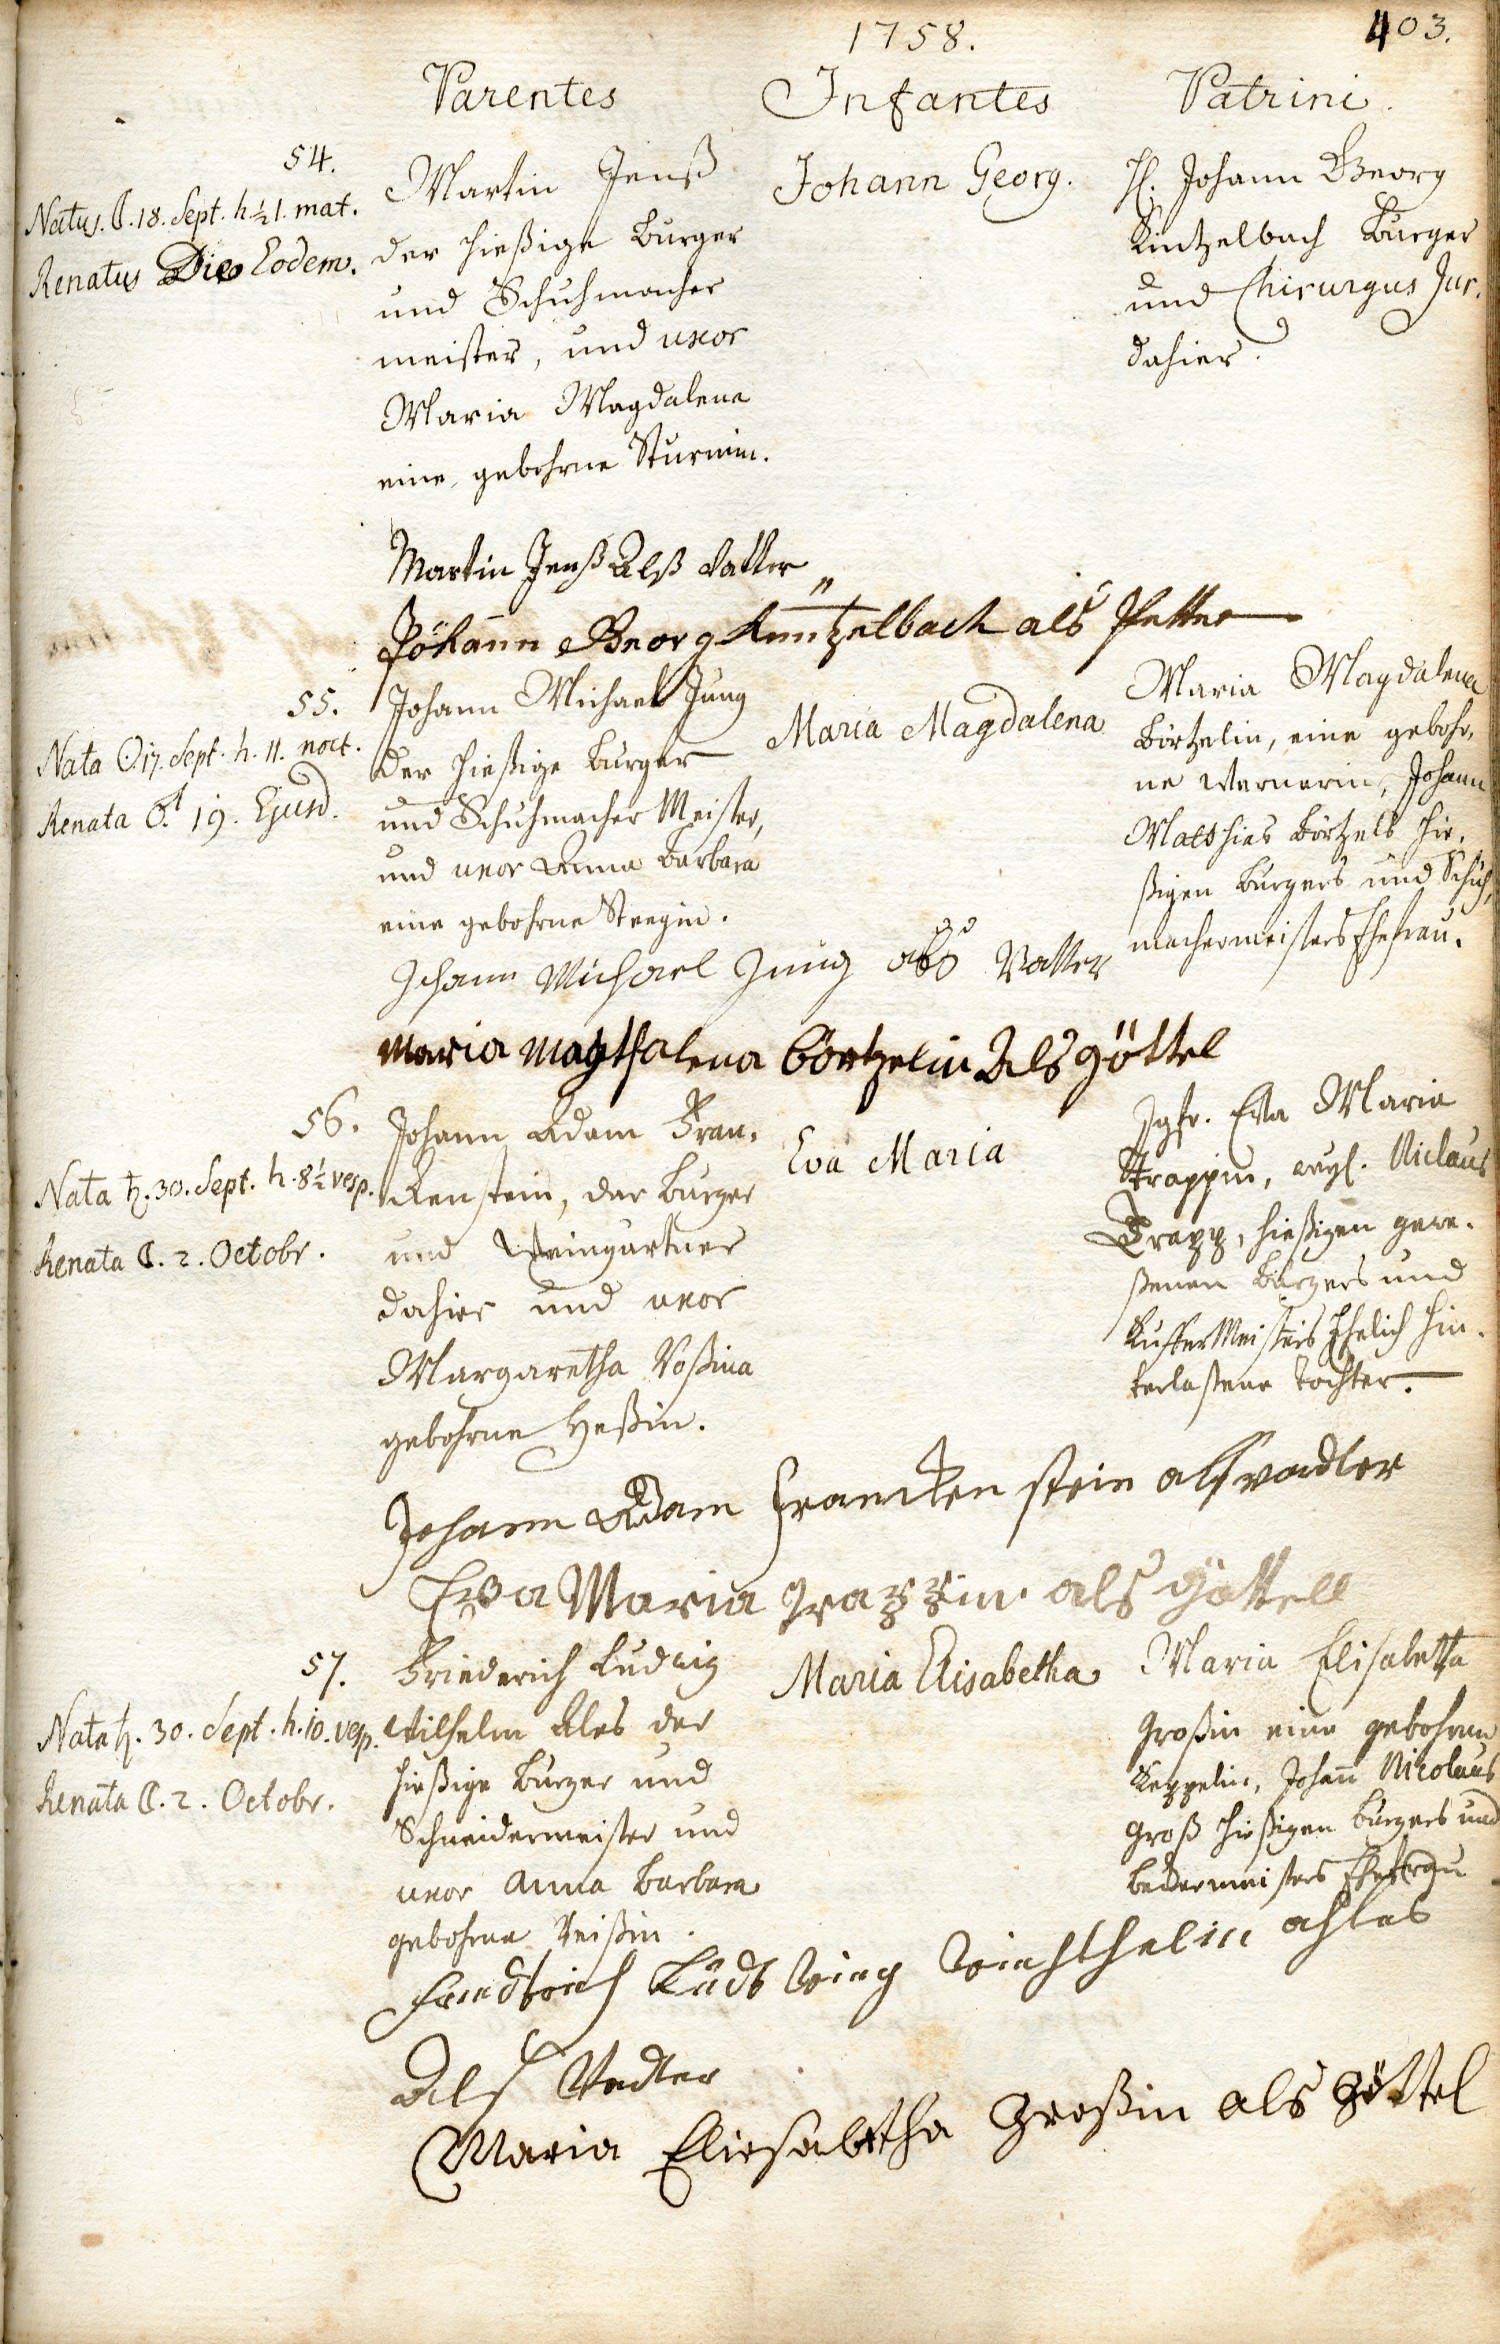 1758.
403.
Parentes Infantes Patrini.
54.
Natus. ☾. 18. Sept. h ½ 1. mat.
Renatus Die Eodem.
Martin Jenß
der hießige Burger
und Schuhmacher
meister, und uxor
Maria Magdalena
eine gebohrne Sturmin.
Johann Georg.
H. Johann Georg
Kintzelbach Burger
und Chirurgus Jur.
dahier.
Martin Jenß Alß Vatter
Johann Georg Küntzelbach als Petter
55.
Nata ☉ 17. Sept. h. 11. noct.
Renata ♂ 19. Ejusd.
Johann Michael Jung
der hießige Burger
und Schuhmacher Meister,
und uxor Anna Barbara
eine gebohrne Steegin.
Maria Magdalena
Maria Magdalena
Börtzelin, eine gebohr,
ne Wernerin, Johann
Matthias Börtzels hie,
ßigen Burgers und Schuh,
machermeisters Ehefrau.
Johann Michael Jung als Vatter
Maria Magthalena Börtzelin Als göttel
56.
Nata ♄. 30. Sept. h. 8½ vesp.
Renata ☾. 2. Octobr.
Johann Adam Fran,
kenstein, der Burger
und Weingartner
dahier und uxor
Margaretha Rosina
gebohrne Heßin.
Eva Maria
Jgfr. Eva Maria
Trappin, weyl. Niclaus
Trapp, hießigen gewe,
ßenen Burgers und
Kuffer Meisters Ehelich hin,
terlaßene Tochter.
Johann Adam Francken stein alß vadter
Eva Maria Trappin als göttell
57.
Nata ♄. 30. Sept. h. 10. vesp.
Renata ☾. 2. Octobr.
Friederich Ludwig
Wilhelm Ales der
hießige Burger und
Schneidermeister und
uxor Anna Barbara
gebohrne Reißin.
Maria Elisabetha
Maria Elisabetha
Großin eine gebohrne
Keppelin, Johann Nicolaus
Groß hießigen Burgers und
Beckermeisters Ehefrau
Friedrich Ludwig Wilhhelm ahles
Als Vadter
Maria Eliesabetha Großin als göttel